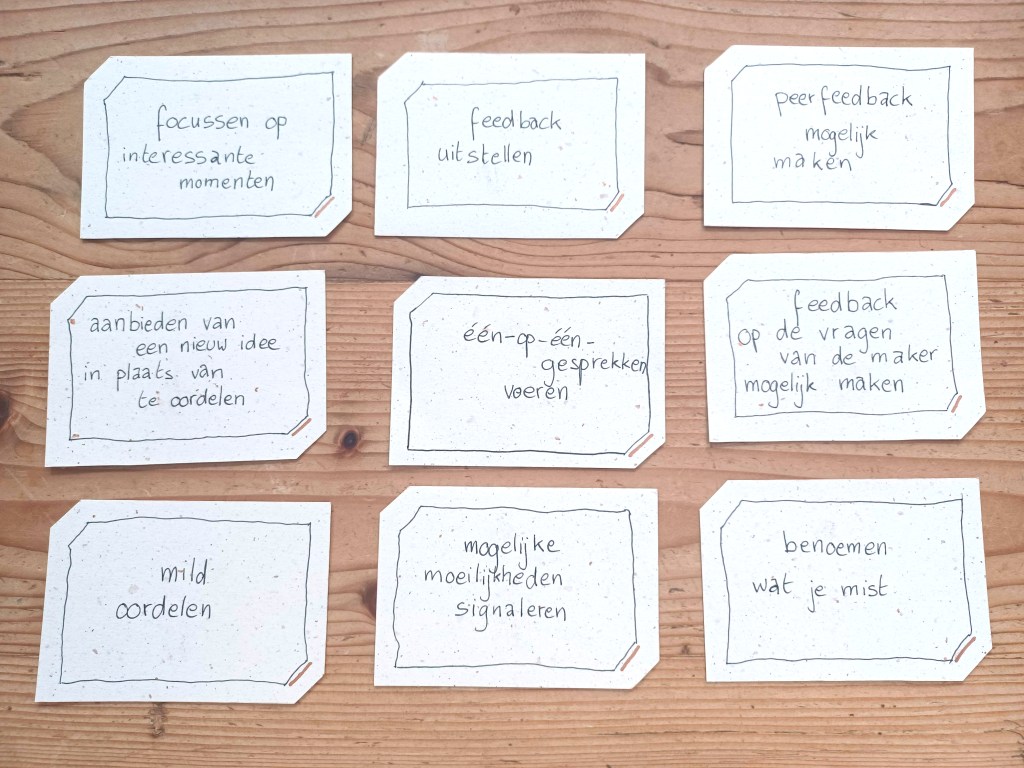 focussen op
interessante
momenten
feedback
uitstellen
peerfeedback
mogelijk
maken
aanbieden van
een nieuw idee
in plaats van
te oordelen
één-op-één-
gesprekken
voeren
feedback
op de vragen
van de maker
mogelijk maken
mild
oordelen
mogelijke
moeilijkheden
signaleren
benoemen
wat je mist